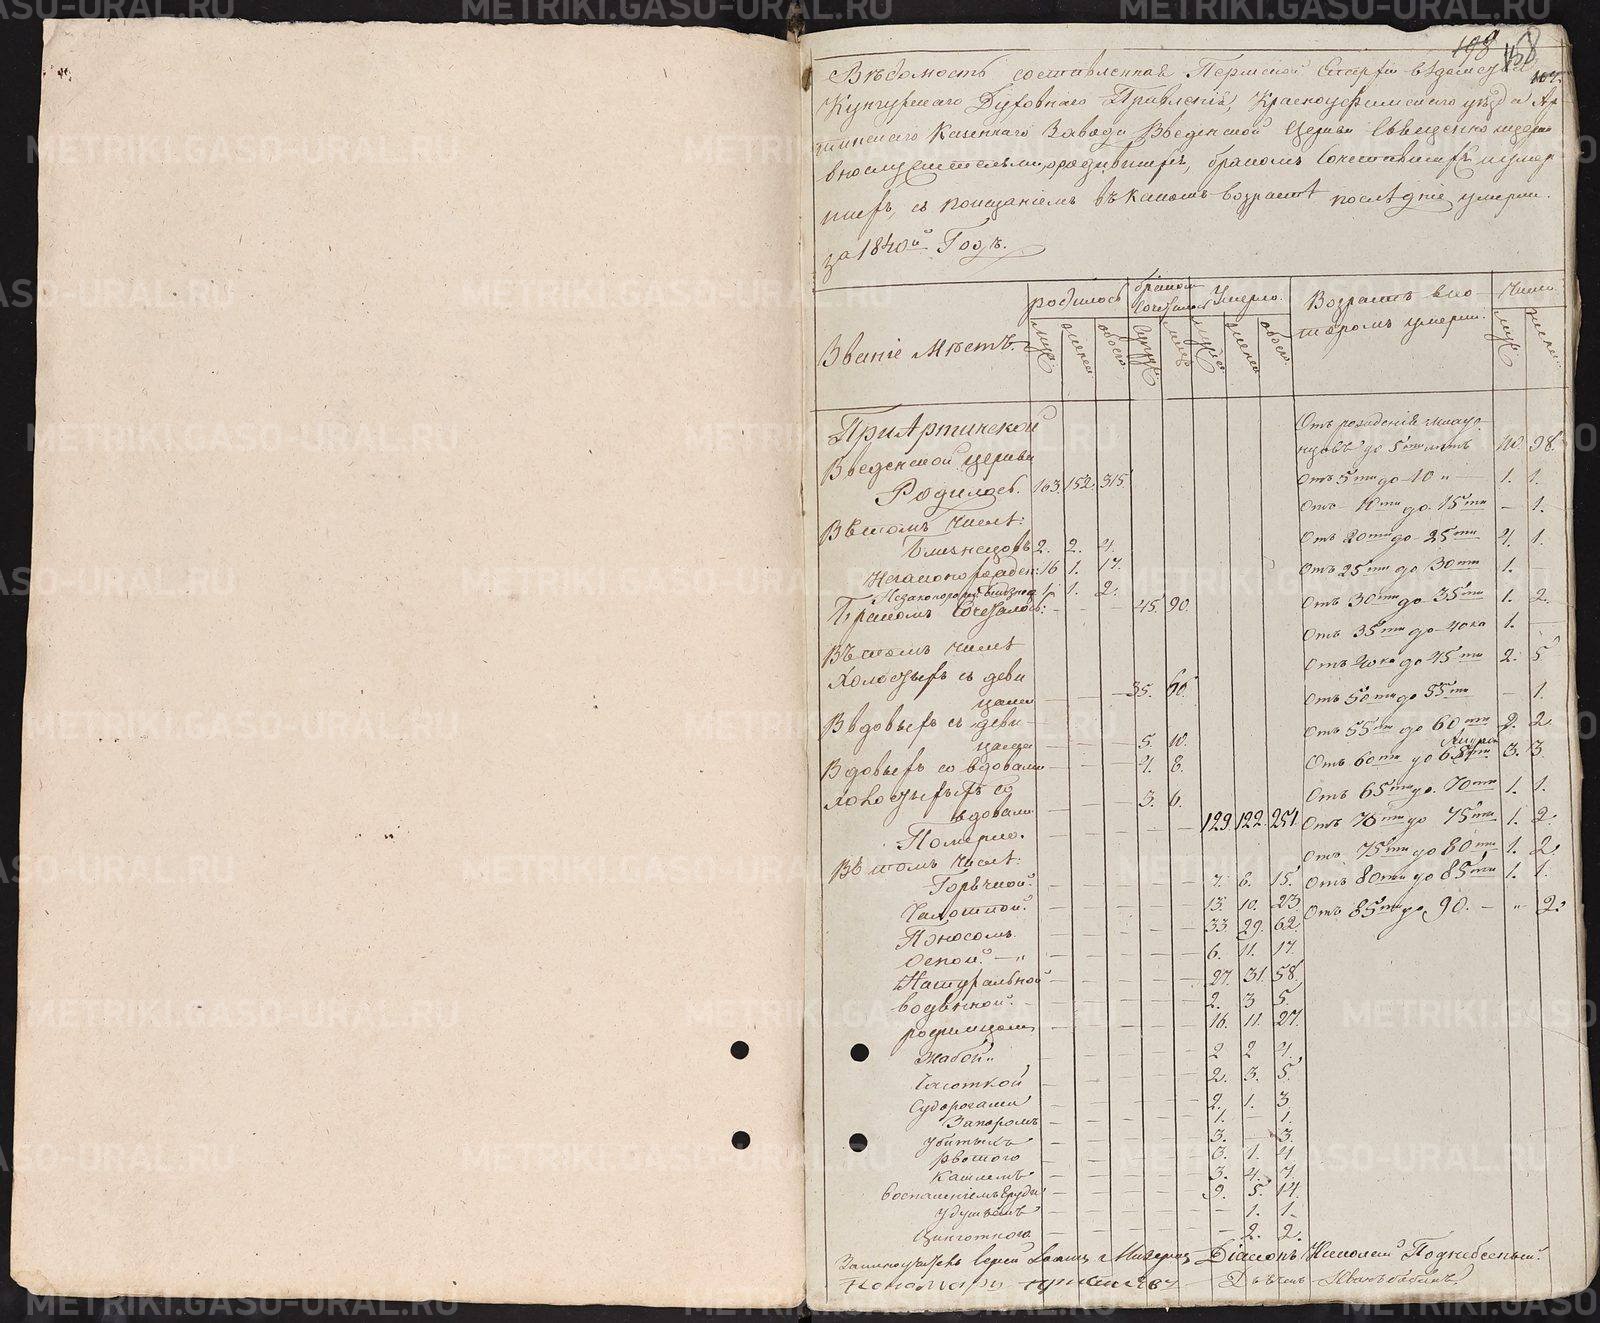 198 158
Вѣдомость составленная Пермской Епархіи вѣдомства
Кунгурскаго Духовнаго Правленія, Красноуфимскаго уѣзда Ар
тинскаго Казеннаго Завода Введенской Церкви Священно церко
внослужительми, о родившихъ, бракомъ сочетавшихъ и умер
шихъ, съ показаніемъ въ какомъ возрастѣ послѣдніе умерли.
за 1840й Годъ.
Званіе Мѣстъ. родилось бракомъ сочеталось Умерло. Возрастъ в ко
торомъ умерли. Число
муж женск обоего муж женск обоего муж женск
При Артинской
Введенской церкви
Родилось. 163. 152. 315.
Въ томъ числѣ:
Близнецовъ 2. 2. 4.
Незаконорожден: 16 1. 17.
Незаконорожд близнец 1. 1. 2.
Бракомъ Сочеталось: 45. 90.
Въ томъ числѣ
Холостыхъ съ деви
цами 35. 60.
Вдовыхъ съ деви-
цами 5. 10.
Вдовыхъ со вдовами 4. 8.
Холостыхъ со
вдовами 3. 6.
Померло. 129. 122. 251.
Въ томъ числѣ:
Горячкой. 7. 6. 15.
Чахоткой. 13. 10. 23
Поносомъ. 33. 29. 62.
Оспой. 6. 11. 17
Натуральной 27. 31. 58.
водяной. 2. 3 5.
родимцомъ 16. 11. 27.
Жабой 2 2 4.
Чесоткой 2. 3. 5.
Судорогами 2. 1. 3
Запоромъ 1. 1.
Убитыхъ 3. 3.
рвотою 3. 1. 4
Кашлемъ 3. 4. 7.
Воспаленіемъ груди 9. 5. 14.
Удушьемъ 1. 1.
Цынготною 2. 2.
Отъ рожденія младе-
нцовъ до 5ти летъ 98.
Отъ 5ти до 10 " 1. 1.
Отъ 10ти до 15ти — 1.
Отъ 20ти до 25ти 4. 1.
Отъ 25ти до 30ти 1. —
Отъ 30ти до 35ти 1. 2.
Отъ 35ти до 40ка 1. —
Отъ 40ка до 45ти 2. 5
Отъ 50ти до 55ти — 1.
Отъ 55ти до 60ти 2. 2
Отъ 60ти до 65ти 3. 3.
Отъ 65ти до 70ти 1. 1.
Отъ 70ти до 75ти 1. 2.
Отъ 75ти до 80ти 1. 2.
Отъ 80ти до 85ти 1. 1.
Отъ 85ти до 90. — " 2.
Діаконъ Николай Поднебесный.
METRIKI.GASO-URAL.RU